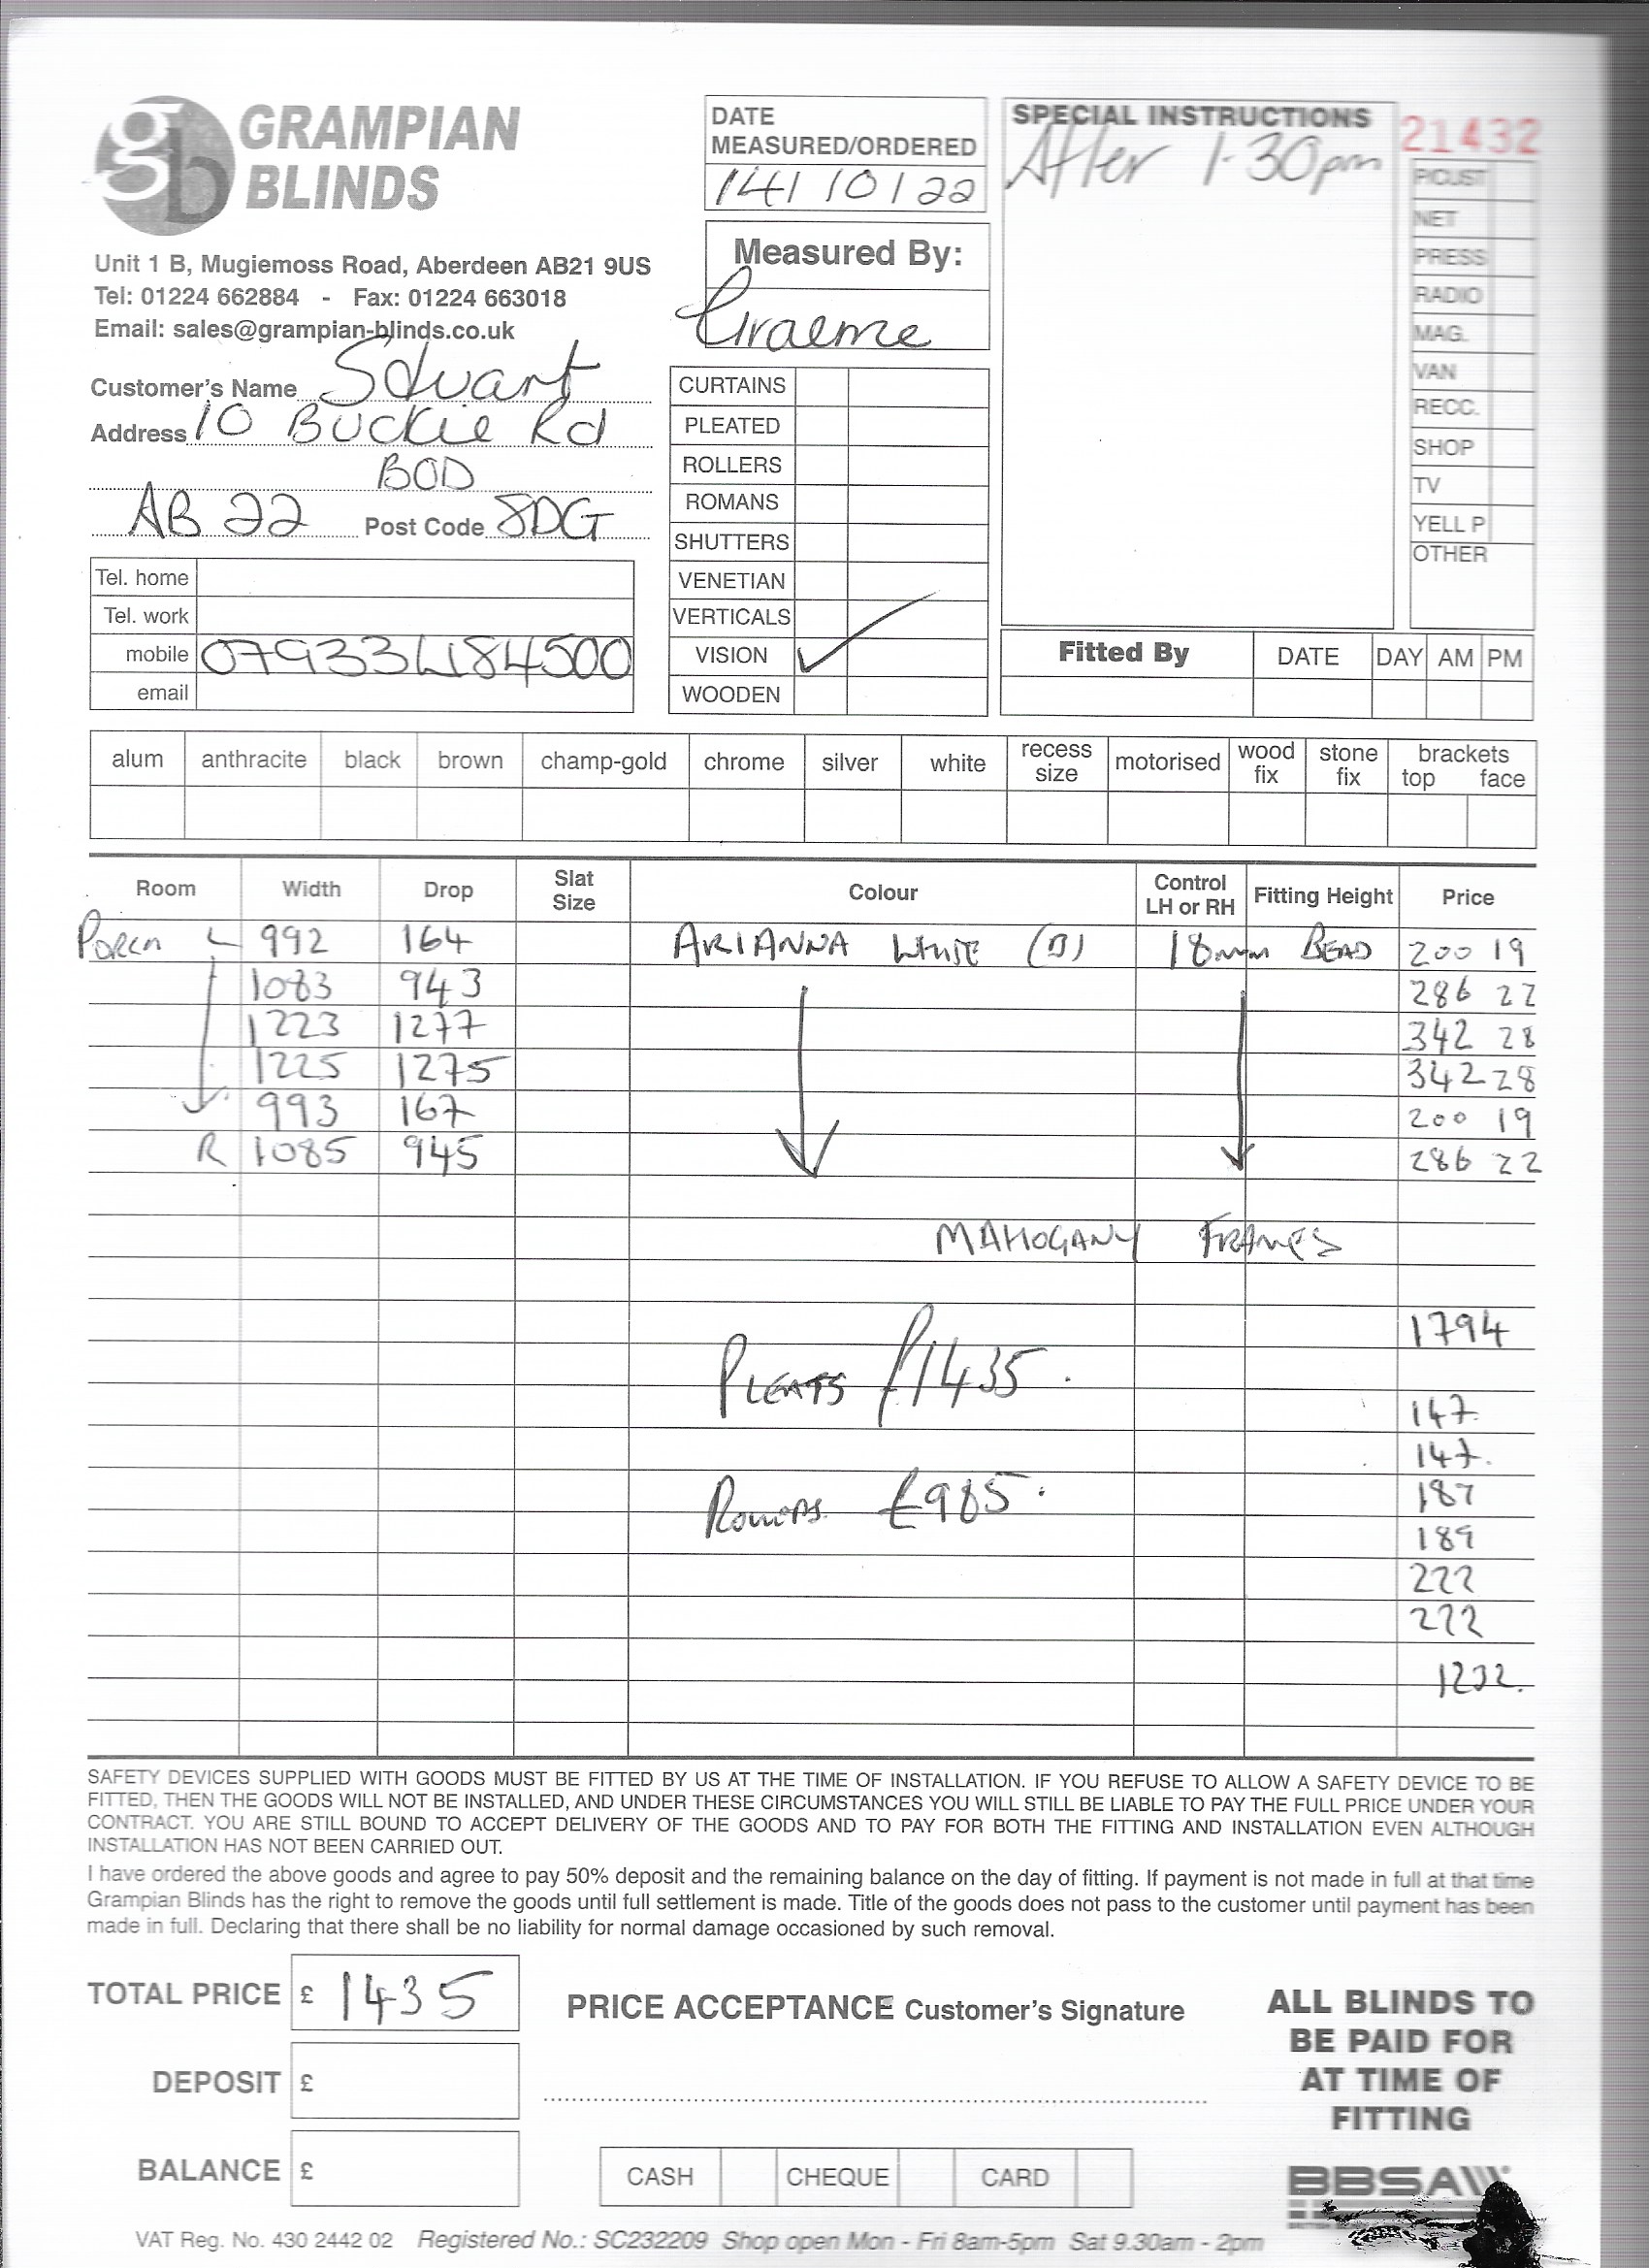 GRAMPIAN
BLINDS
Unit 1 B, Mugiemoss Road, Aberdeen AB21 9US
Tel: 01224 662884 - Fax: 01224 663018
Email: sales@grampian-blinds.co.uk
Customer's Name
Address 10 Buckie Rd
BOD
AB 22 Post Code 8DG
Tel. home
Tel. work
mobile
email
DATE
MEASURED/ORDERED
14/10/22
Measured By:
Graeme
CURTAINS
PLEATED
ROLLERS
ROMANS
SHUTTERS
VENETIAN
VERTICALS
VISION ✓
WOODEN
SPECIAL INSTRUCTIONS
After 1-30pm
21432
P/CUST
NET
PRESS
RADIO
MAG.
VAN
RECC.
SHOP
TV
YELL P
OTHER
Fitted By DATE DAY AM PM
alum anthracite black brown champ-gold chrome silver white recess size motorised wood fix stone fix brackets top face
Room Width Drop Slat Size Colour Control LH or RH Fitting Height Price
Porch L 992 164 ARIANNA WHITE (B) 18mm BEAD 200 19
1083 943 286 22
1223 1277 342 28
1225 1275 342 28
993 167 200 19
R 1085 945 286 22
MAHOGANY FRAMES
1794
PLEATS £1435.
147
147.
187
189
222
222
Rollers £985.
1232.
SAFETY DEVICES SUPPLIED WITH GOODS MUST BE FITTED BY US AT THE TIME OF INSTALLATION. IF YOU REFUSE TO ALLOW A SAFETY DEVICE TO BE
FITTED, THEN THE GOODS WILL NOT BE INSTALLED, AND UNDER THESE CIRCUMSTANCES YOU WILL STILL BE LIABLE TO PAY THE FULL PRICE UNDER YOUR
CONTRACT. YOU ARE STILL BOUND TO ACCEPT DELIVERY OF THE GOODS AND TO PAY FOR BOTH THE FITTING AND INSTALLATION EVEN ALTHOUGH
INSTALLATION HAS NOT BEEN CARRIED OUT.
I have ordered the above goods and agree to pay 50% deposit and the remaining balance on the day of fitting. If payment is not made in full at that time
Grampian Blinds has the right to remove the goods until full settlement is made. Title of the goods does not pass to the customer until payment has been
made in full. Declaring that there shall be no liability for normal damage occasioned by such removal.
TOTAL PRICE £ 1435
DEPOSIT £
BALANCE £
PRICE ACCEPTANCE Customer's Signature
CASH CHEQUE CARD
ALL BLINDS TO
BE PAID FOR
AT TIME OF
FITTING
BBSA
VAT Reg. No. 430 2442 02 Registered No.: SC232209 Shop open Mon - Fri 8am-5pm Sat 9.30am - 2pm